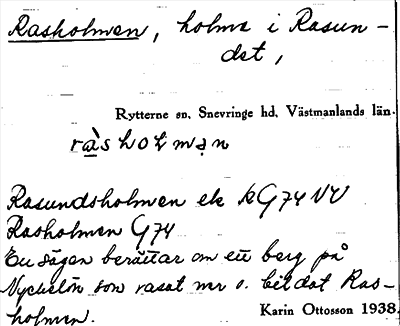 Rasholmen, holme i Rasun-
det,
Rytterne sn, Snevringe hd, Västmanlands län.
Rasundsholmen ek kG74NV
Rasholmen G74
En sägen berättar om ett berg på
Nyckelön som rasat ner o. bildat Ras-
holmen.
Karin Ottosson 1938.